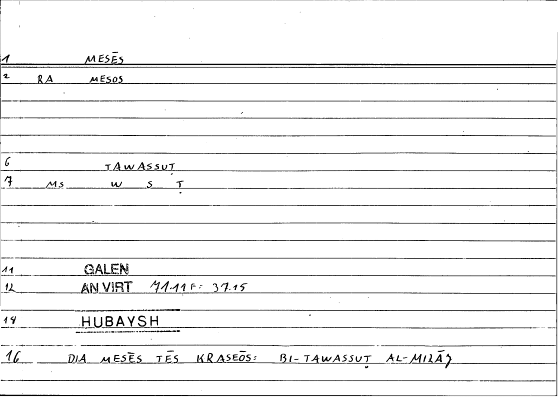 1 MESĒS
2 RA MESOS
6 TAWASSUṬ
7 MS W S Ṭ
11 GALEN
12 AN VIRT 71.11 F: 37.15
14 HUBAYSH
16 DIA MESĒS TĒS KRASEŌS: BI-TAWASSUṬ AL-MIZĀǧ